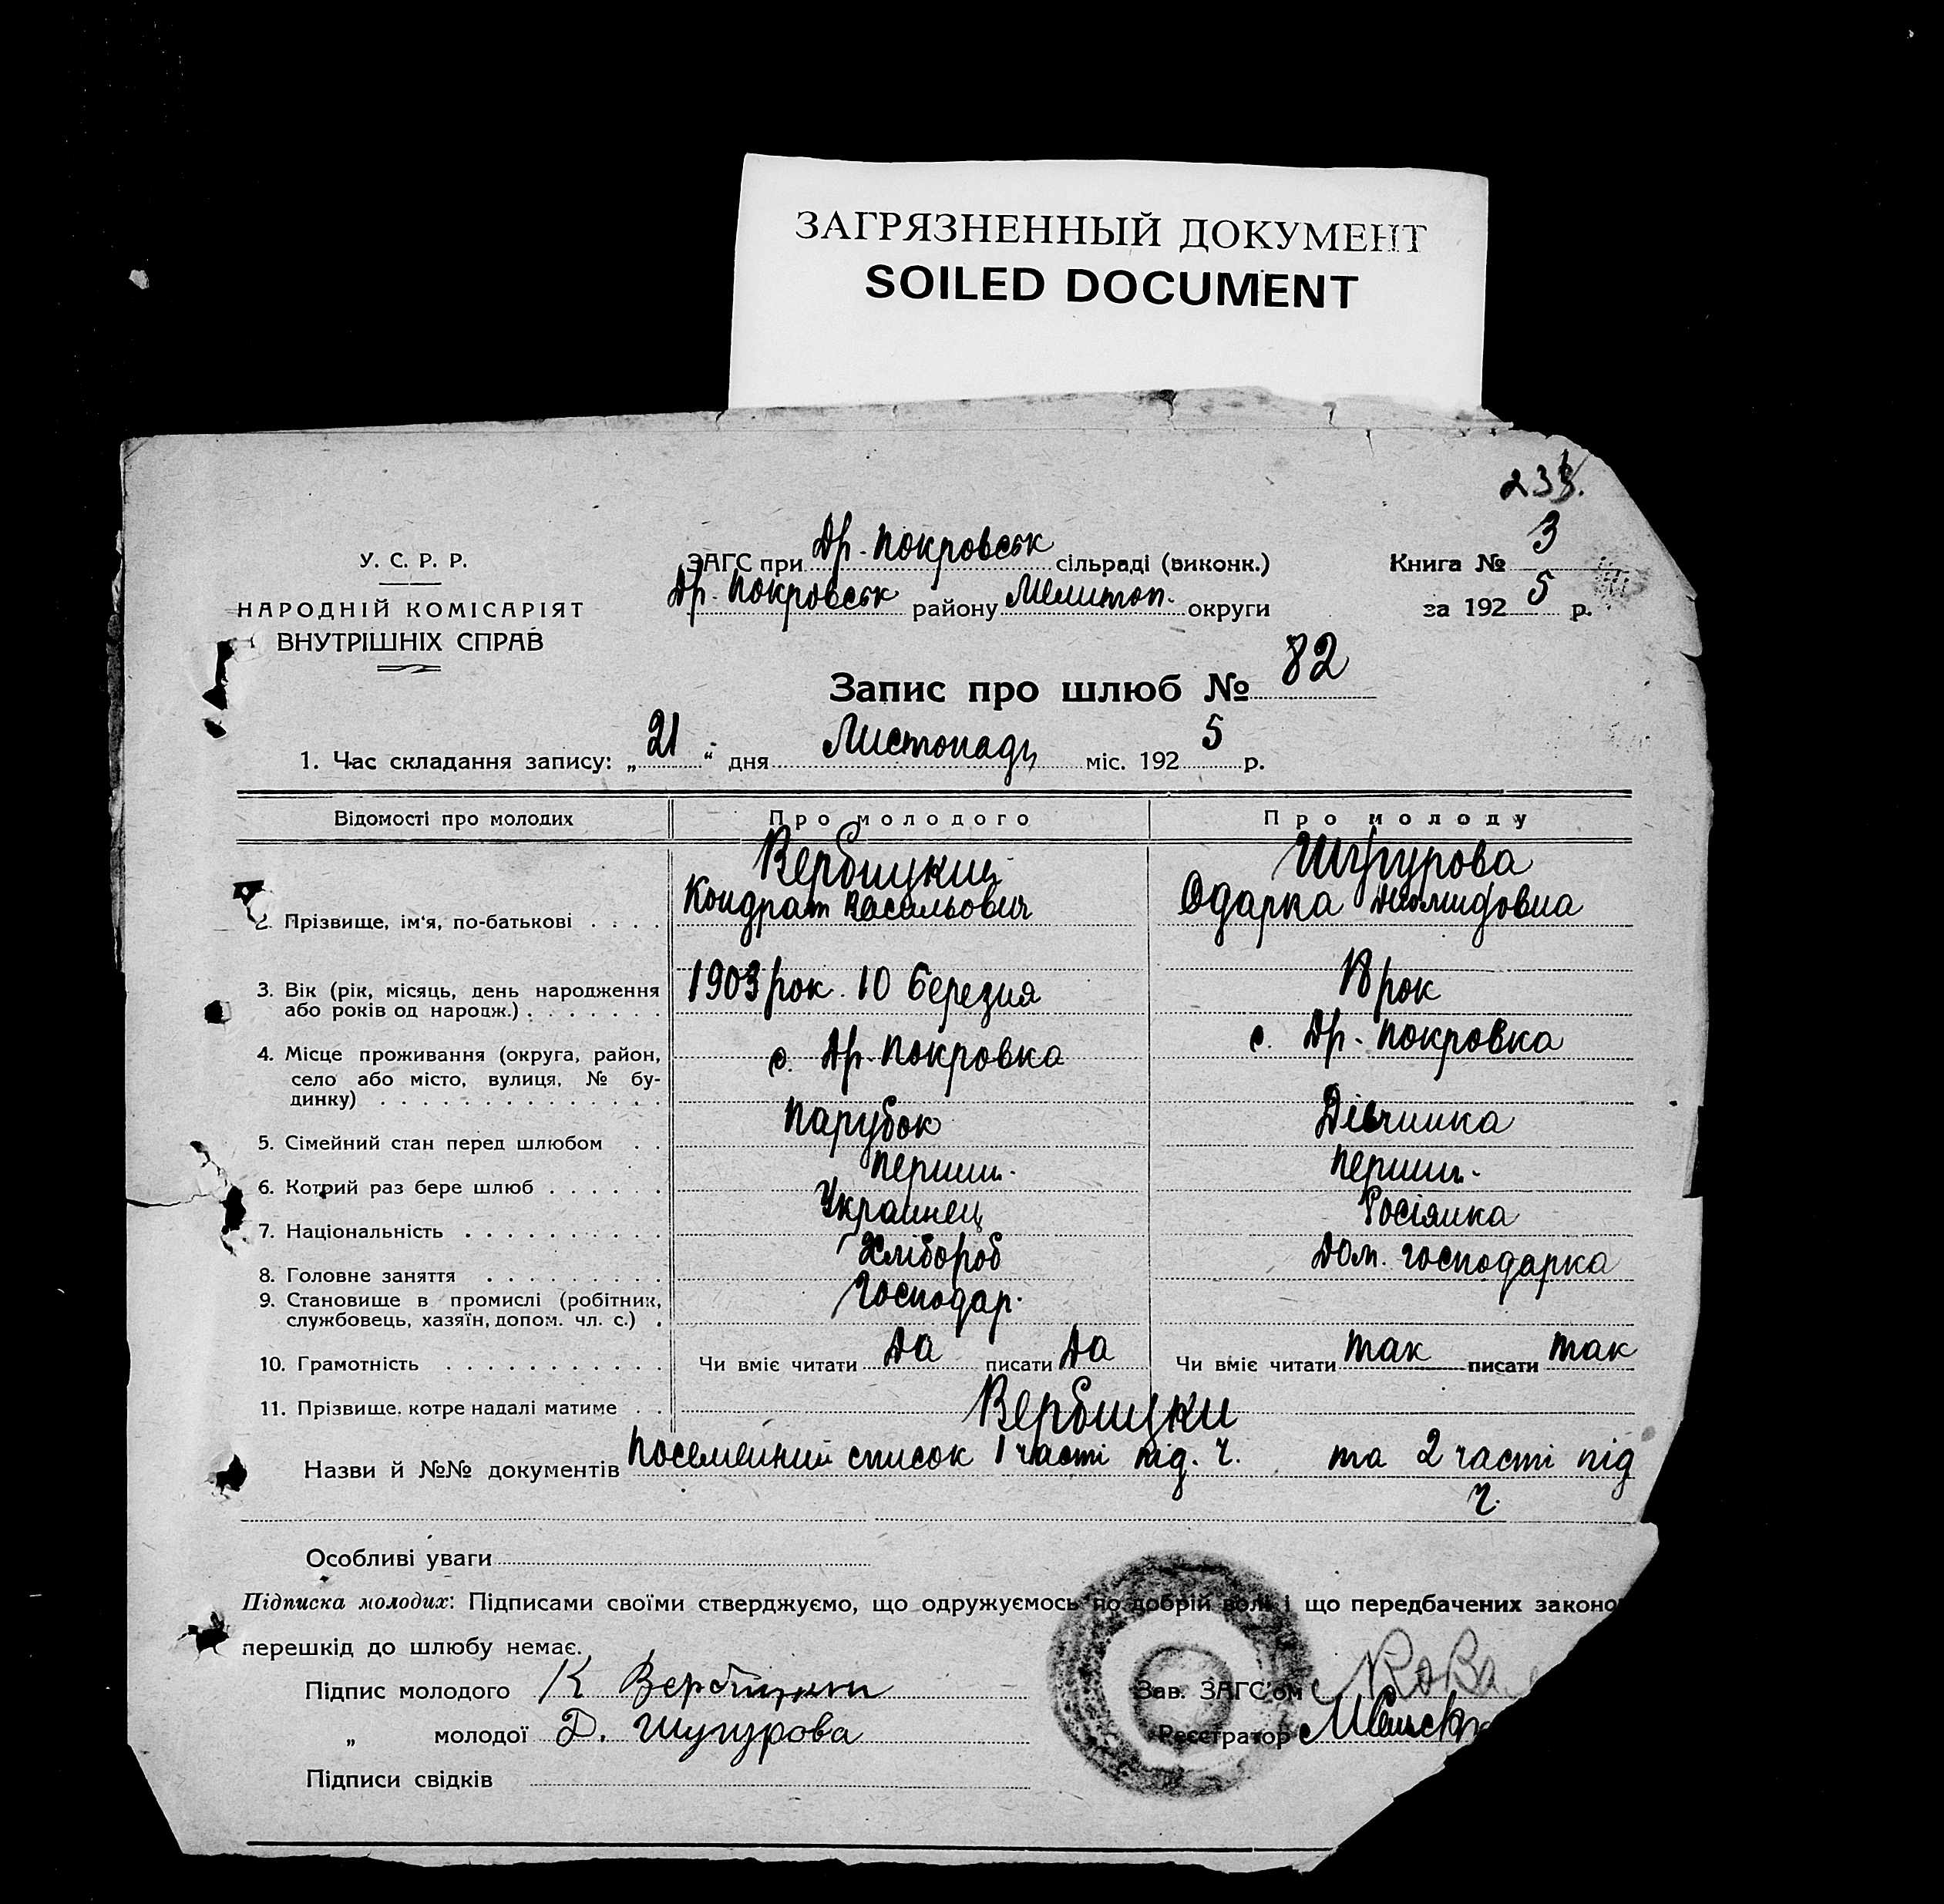 ЗАГРЯЗНЕННЫЙ ДОКУМЕНТ
SOILED DOCUMENT
У. С. Р. Р.
НАРОДНІЙ КОМІСАРІЯТ
ВНУТРІШНІХ СПРАВ
ЗАГС при Др. Покровськ сільраді (виконк.)
Др. Покровськ району Мелитоп. округи
Книга № 3
за 1925 р.
Запис про шлюб № 82
1. Час складання запису: „21“ дня Листопаду міс. 1925 р.
Відомості про молодих Про молодого Про молоду
2. Прізвище, ім'я, по-батькові . . . . Вербицкий Кондрат Васильович Шугурова Одарка Диомидовна
3. Вік (рік, місяць, день народження або років од народж.) . . . . . . . 1903 рок. 10 березня 18 рок
4. Місце проживання (округа, район, село або місто, вулиця, № будинку) . . . . . . . . . . . . . . с. Др. Покровка с. Др. Покровка
5. Сімейний стан перед шлюбом . . Парубок Дівчинка
6. Котрий раз бере шлюб . . . . . . перший. перший.
7. Національність . . . . . . . . . . Украинец Росіянка
8. Головне заняття . . . . . . . . . Хлібороб Дом. господарка
9. Становище в промислі (робітник, службовець, хазяїн, допом. чл. с.) . Господар.
10. Грамотність . . . . . . . . . . . Чи вміє читати да писати да Чи вміє читати так писати так
11. Прізвище, котре надалі матиме . . Вербицки
Назви й №№ документів Посемейний список 1 часті під. ч. та 2 часті під
ч.
Особливі уваги
Підписка молодих: Підписами своїми стверджуємо, що одружуємось по добрій волі і що передбачених законо
перешкід до шлюбу немає.
Підпис молодого К Вербицкий
„ молодої Д. Шугурова
Підписи свідків
Зав. ЗАГС'ом
Реєстратор